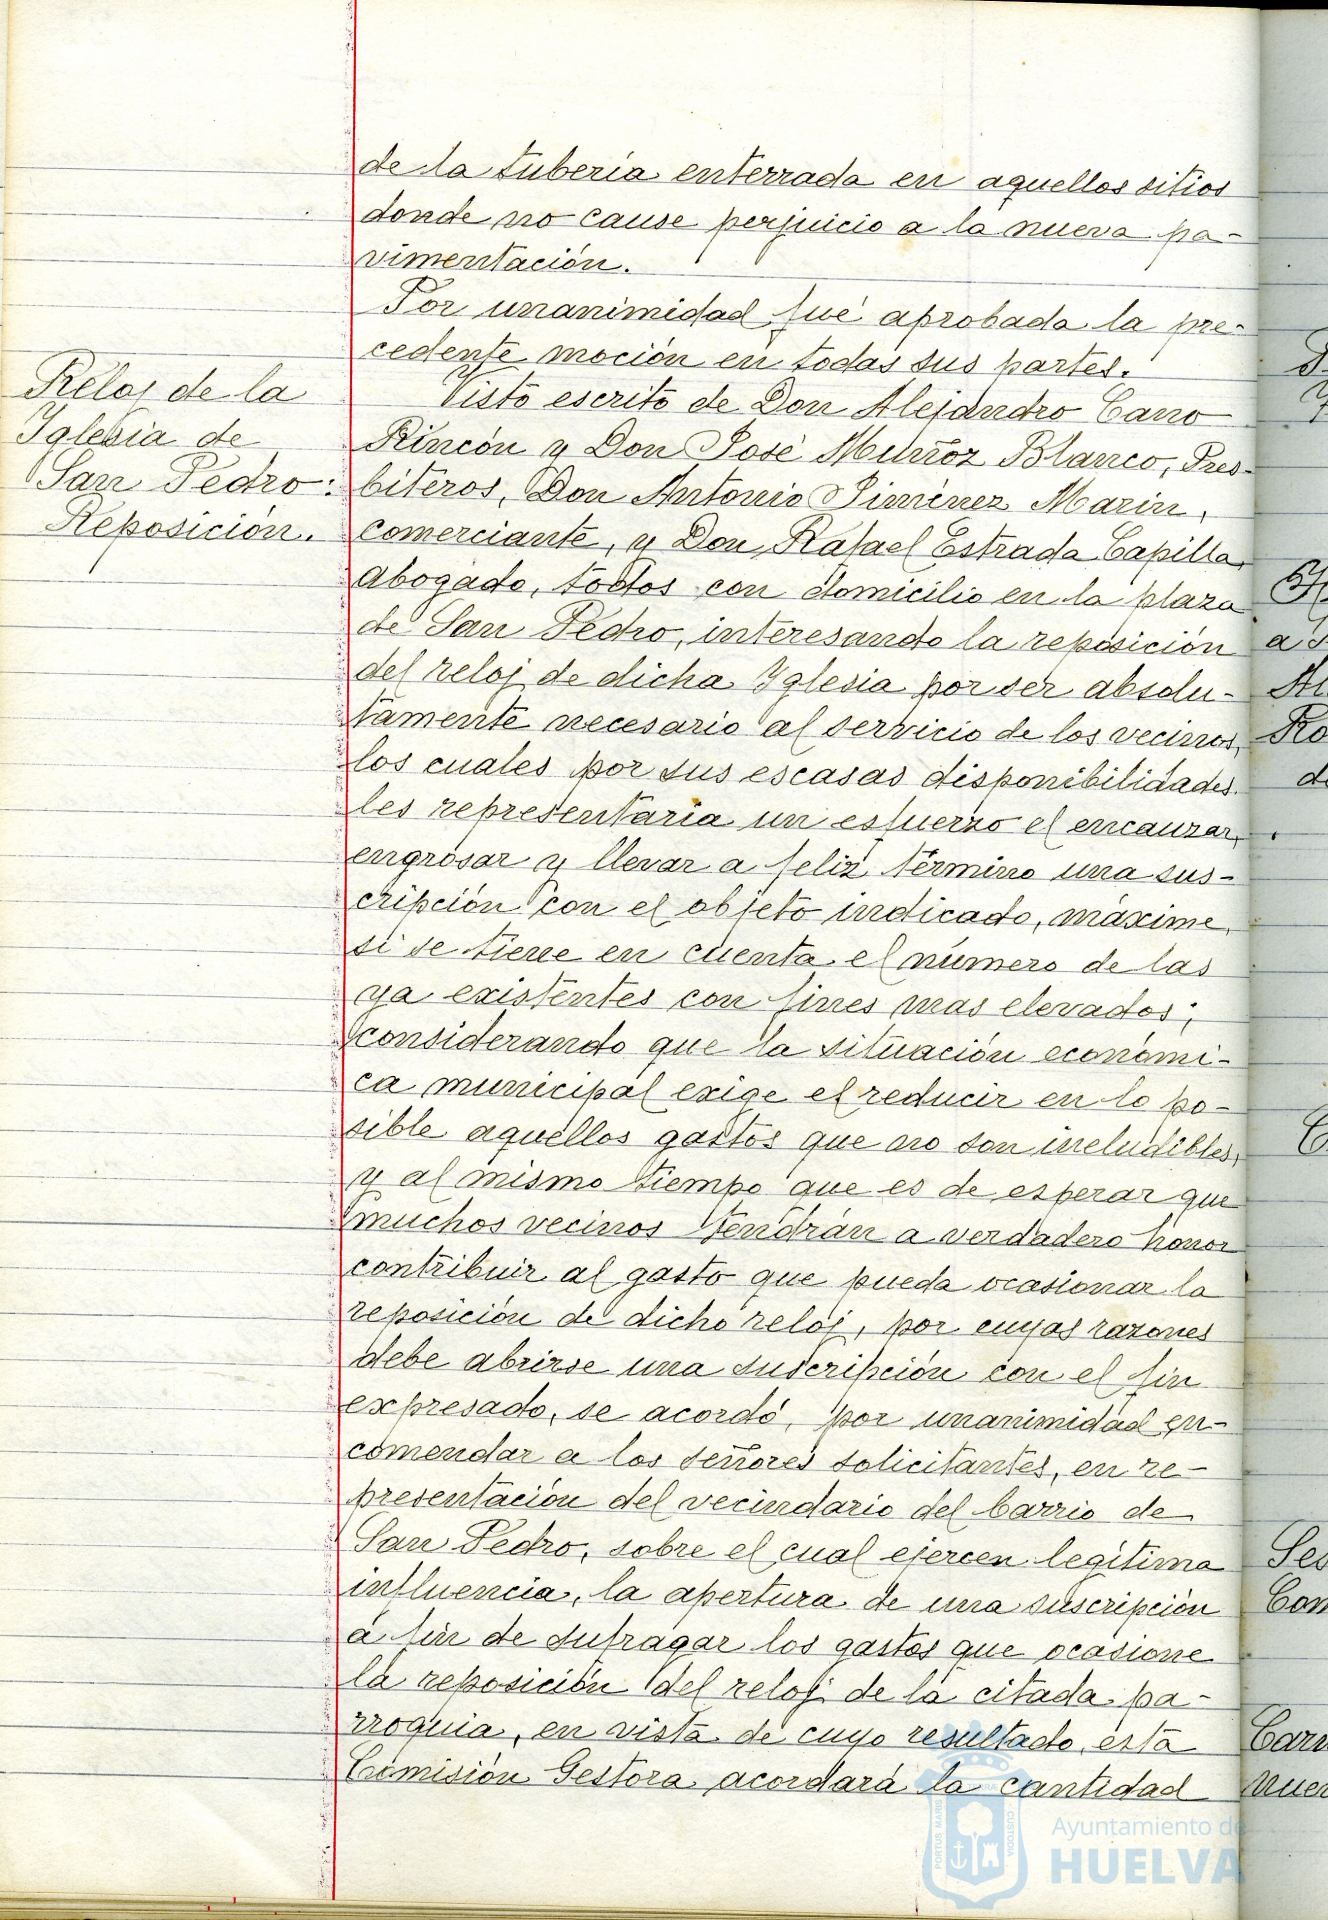 de la tubería enterrada en aquellos sitios
donde no cause perjuicio a la nueva pa-
vimentación.
Por unanimidad fué aprobada la pre-
cedente moción en todas sus partes.
Reloj de la
Iglesia de
San Pedro:
Reposición.
Visto escrito de Don Alejandro Cano
Rincón y Don José Muñoz Blanco, Pres-
bíteros, Don Antonio Jiménez Marín,
comerciante, y Don Rafael Estrada Capilla,
abogado, todos con domicilio en la plaza
de San Pedro, interesando la reposición
del reloj de dicha Iglesia por ser absolu-
tamente necesario al servicio de los vecinos,
los cuales por sus escasas disponibilidades
les representaría un esfuerzo el encauzar,
engrosar y llevar a feliz término una sus-
cripción con el objeto indicado, máxime,
si se tiene en cuenta el número de las
ya existentes con fines mas elevados;
considerando que la situación económi-
ca municipal exige el reducir en lo po-
sible aquellos gastos que no son ineludibles,
y al mismo tiempo que es de esperar que
muchos vecinos tendrán a verdadero honor
contribuir al gasto que pueda ocasionar la
reposición de dicho reloj, por cuyas razones
debe abrirse una suscripción con el fin
expresado, se acordó, por unanimidad en-
comendar a los señores solicitantes, en re-
presentación del vecindario del barrio de
San Pedro, sobre el cual ejercen legítima
influencia, la apertura de una suscripción
a fin de sufragar los gastos que ocasione
la reposición del reloj de la citada pa-
rroquia, en vista de cuyo resultado, esta
Comisión Gestora acordará la cantidad
Ayuntamiento de
HUELVA